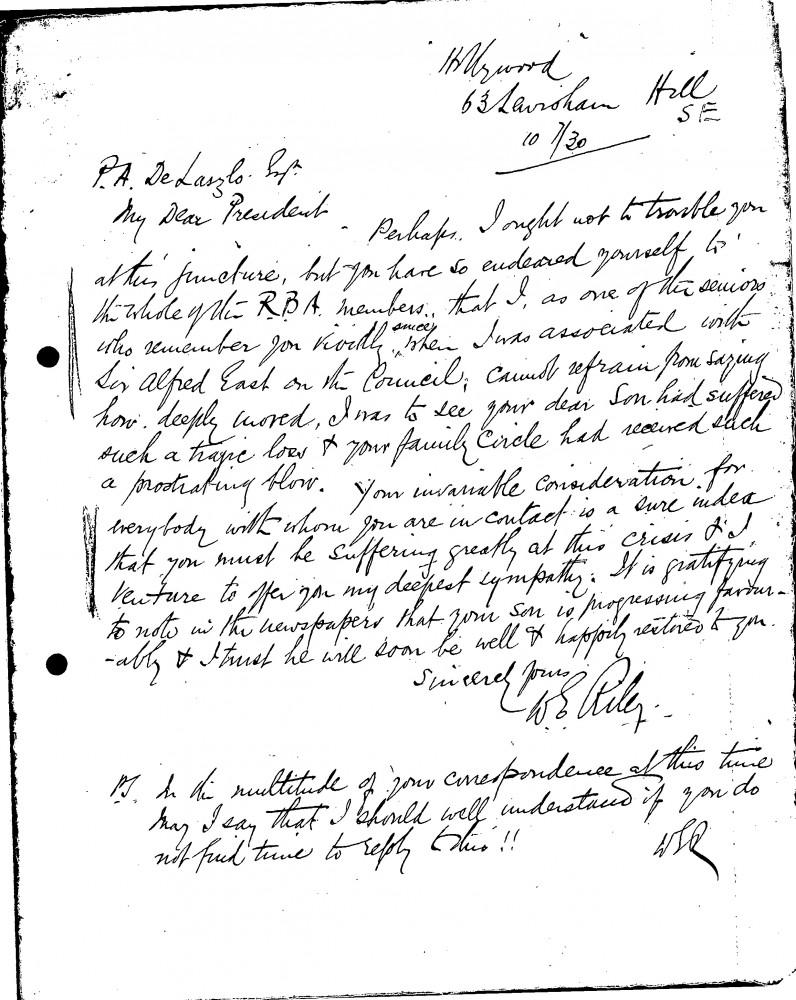 Hollywood
63 Lewisham Hill
SE
10 7/30
P. A. De Laszlo. Esqre
My Dear President
Perhaps. I ought not to trouble you
at this juncture, but you have so endeared yourself to
the whole of the R.B.A. members, that I, as one of the seniors
who remember you vividly, since, when I was associated with
Sir Alfred East on the Council, cannot refrain from saying
how deeply moved, I was to see your dear Son had suffered
such a tragic loss & your family Circle had received such
a prostrating blow. Your invariable consideration for
everybody with whom you are in contact is a sure index
that you must be suffering greatly at this crisis & I
venture to offer you my deepest sympathy. It is gratifying
to note in the newspapers that your son is progressing favour-
-ably & I trust he will soon be well & happily restored to you.
Sincerely yours
W E Riley.
PS. In the multitude of your correspondence at this time
may I say that I should well understand if you do
not find time to reply to this!!
WER